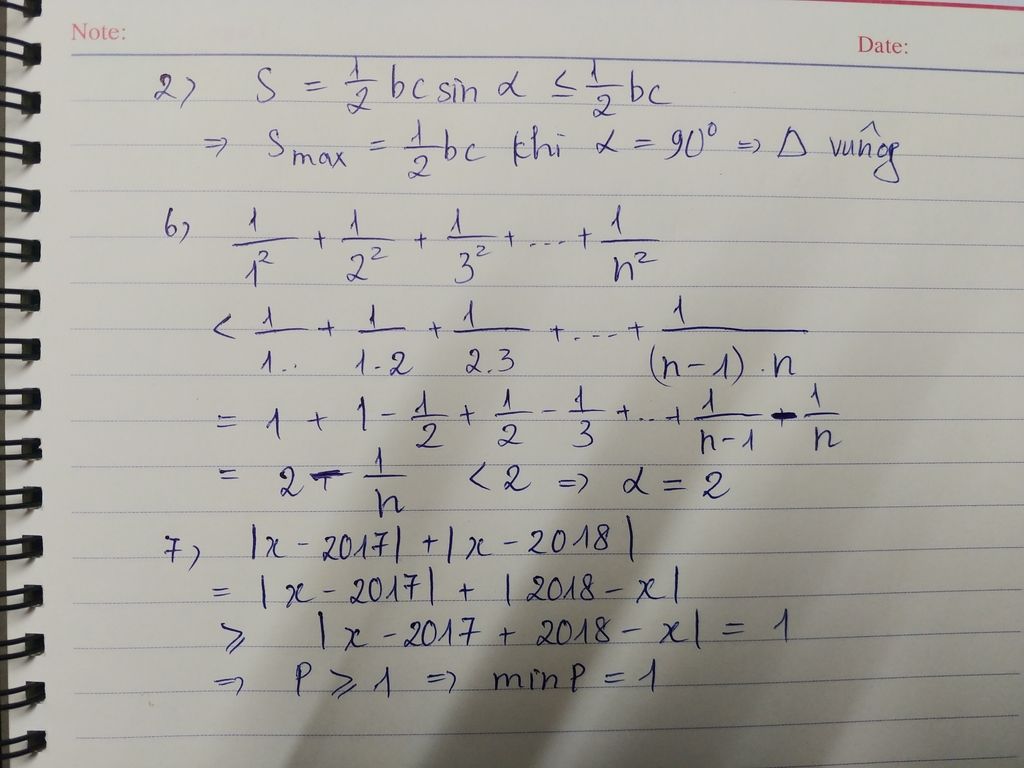 Note:
Date:
2) S = 1/2 bc sin α ≤ 1/2 bc
⇒ Smax = 1/2 bc khi α = 90° ⇒ Δ vuông
6) 1/1² + 1/2² + 1/3² + ... + 1/n²
< 1/1.. + 1/1.2 + 1/2.3 + .... + 1/(n-1).n
= 1 + 1 - 1/2 + 1/2 - 1/3 + ... + 1/n-1 - 1/n
= 2 - 1/n < 2 ⇒ α = 2
7) |x - 2017| + |x - 2018|
= |x - 2017| + |2018 - x|
⩾ |x - 2017 + 2018 - x| = 1
⇒ P ⩾ 1 ⇒ minP = 1